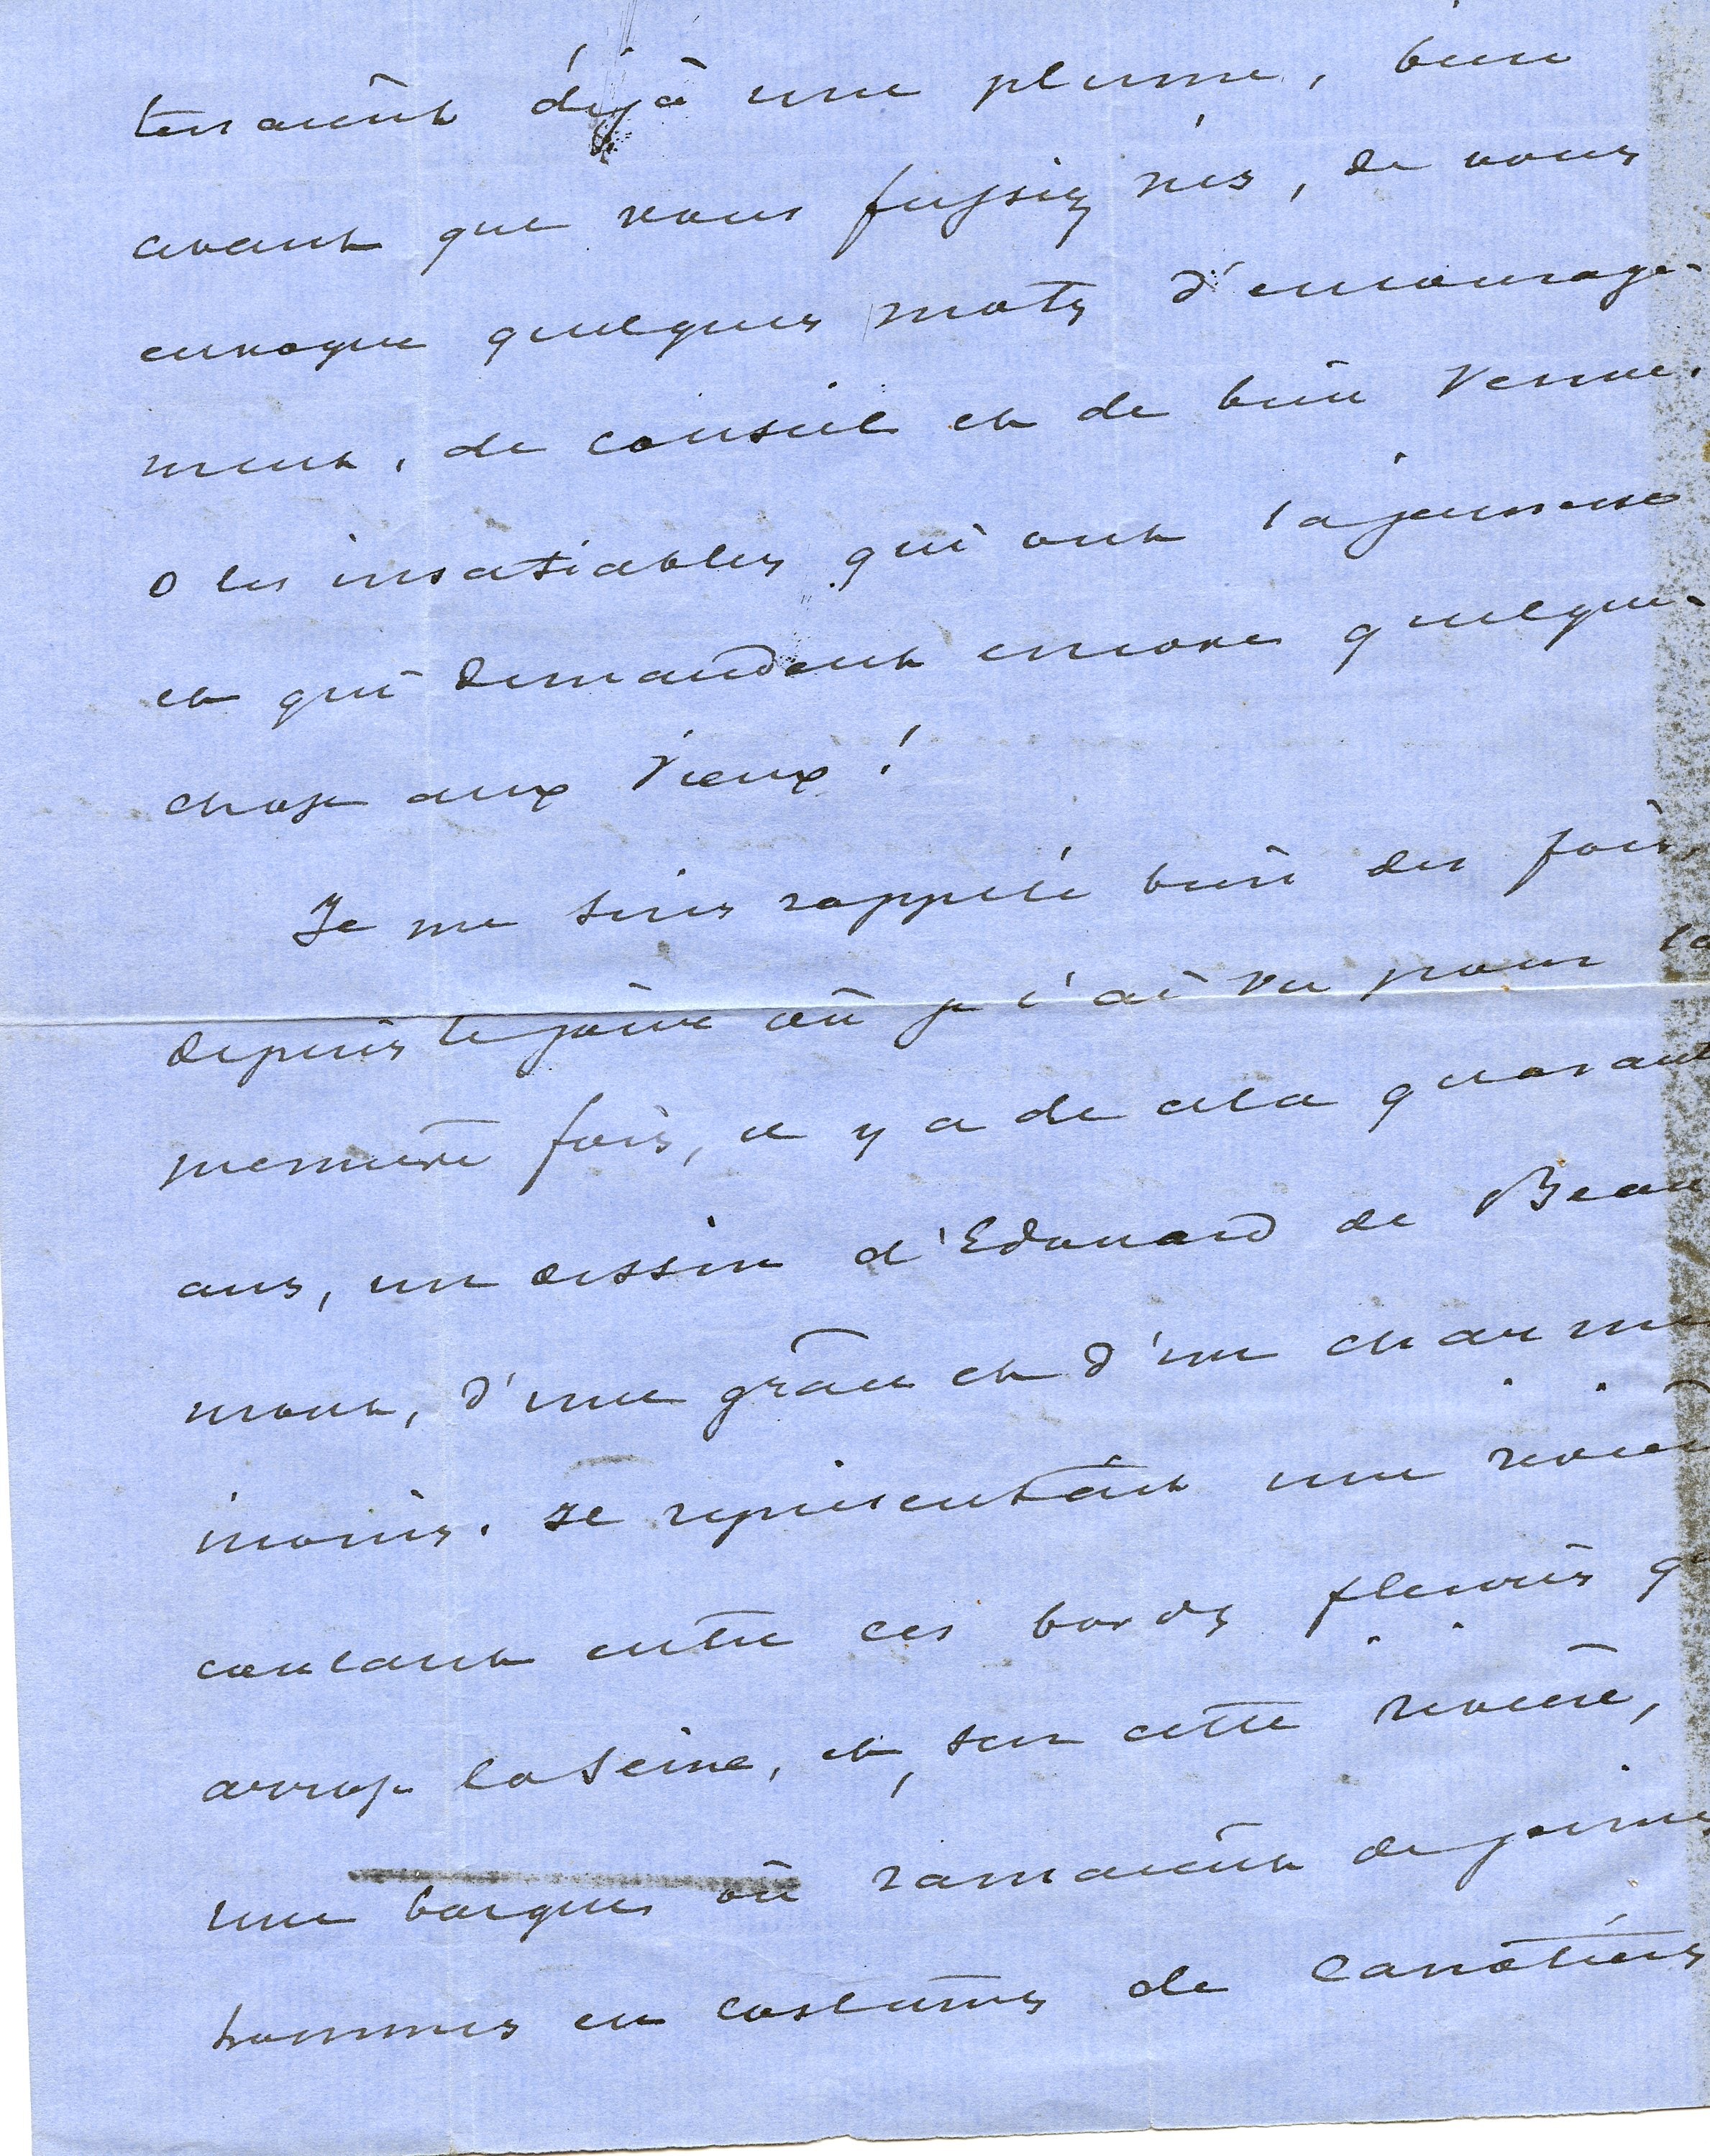 tenaient déjà une plume, bien
avant que vous fussiez nés, de vous
envoyer quelques mots d'encourage-
ment, de conseil et de bien venue.
O les insatiables qui ont la jeunesse
et qui demandent encore quelque-
chose aux vieux !
Je me suis rappelé bien des fois,
depuis le jour où je l'ai vu pour la
première fois, il y a de cela quarante
ans, un dessin d'Edouard de Beau
mont, d'une grâce et d'un charme
inouis. Il représentait une rivière
coulant entre ces bords fleuris qu
arrose la Seine, et, sur cette rivière,
une barque où ramaient de jeunes
hommes en costumes de canotiers